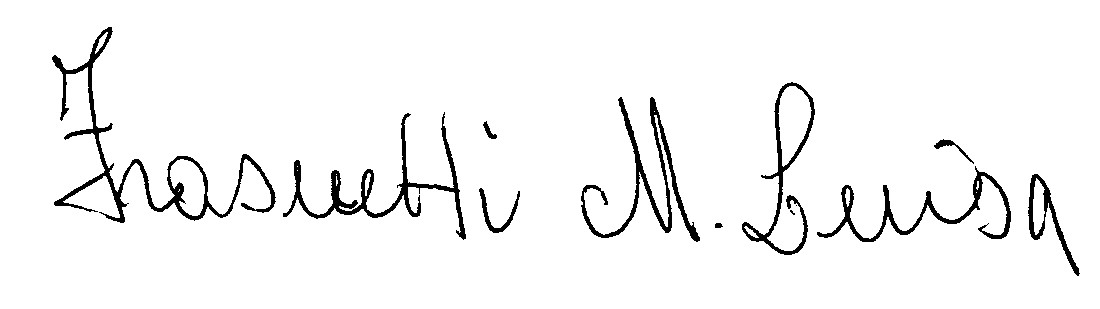 Frasnetti M. Luisa